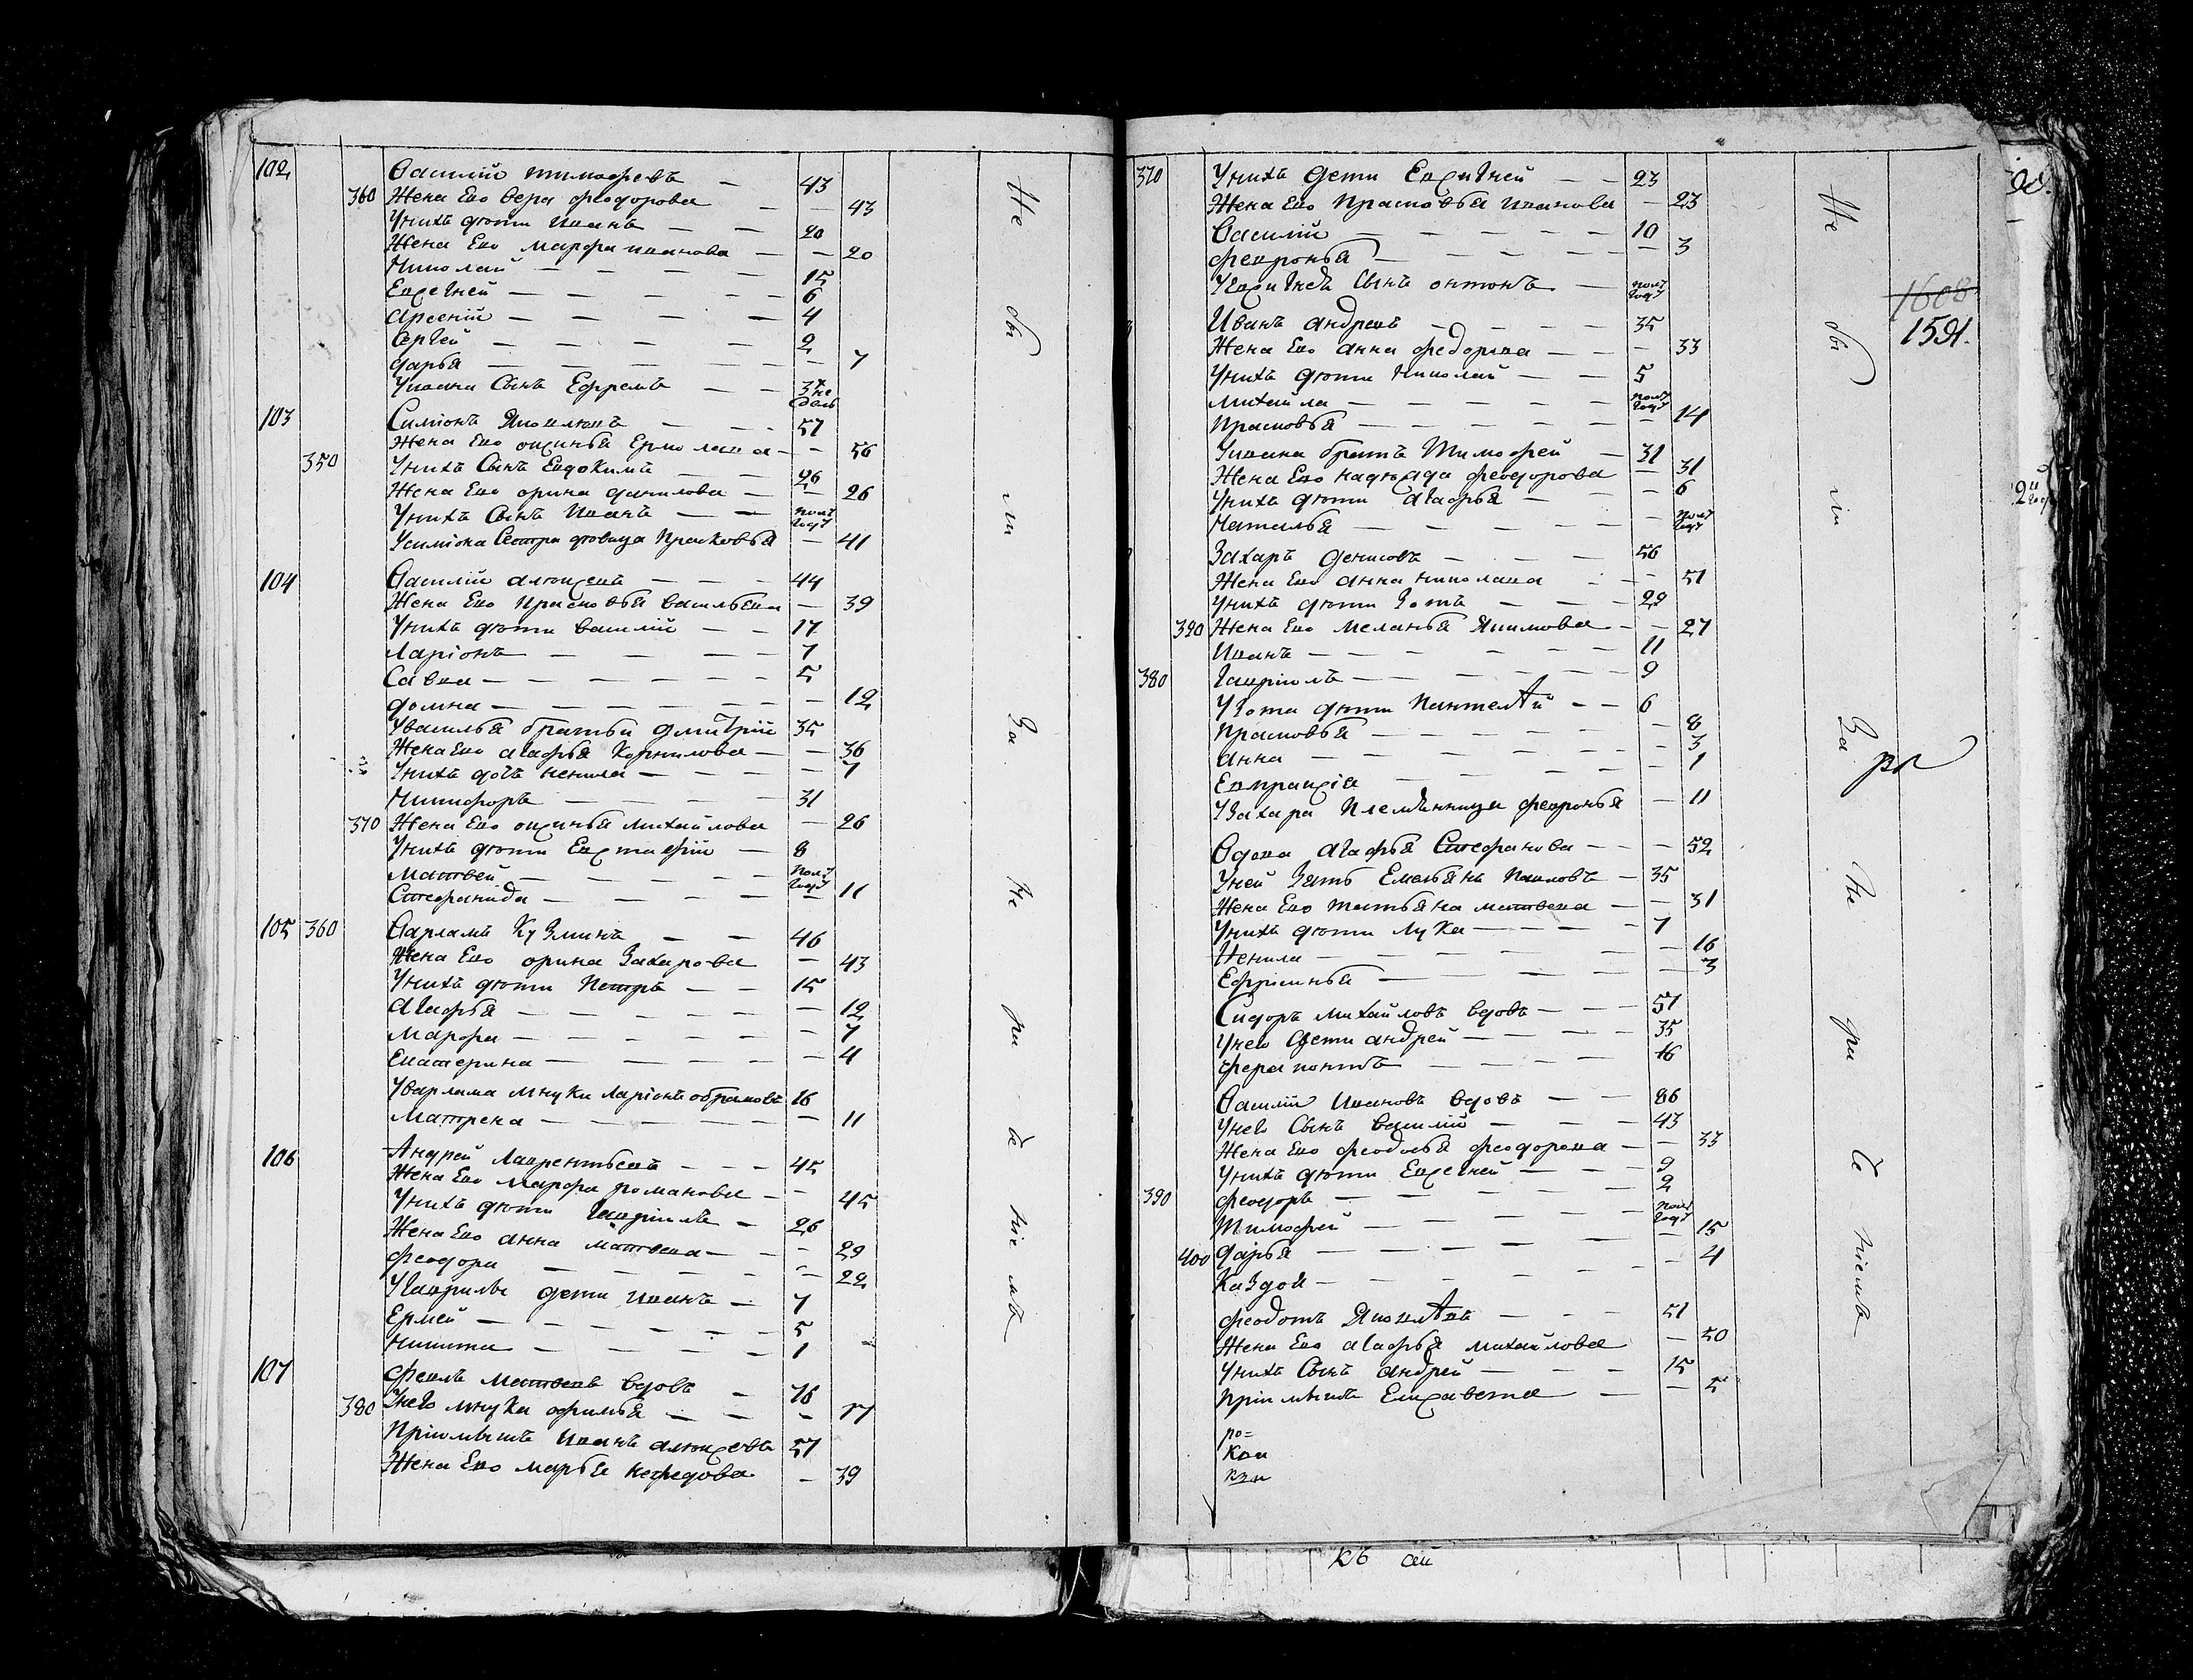 102 Василий тимофеевъ — 43
360 Жена Ево вера феодорова — — 43
Унихъ дѣти Иванъ — — 20
Жена Ево марфа иванова — — 20
Николай — — — — 15
Евгений — — — — 6
Арсений — — — — 4
Сергей — — — — 2
дарья — — — — — 7
Уивана Сынъ Ефремъ — — 3х не дѣль
103 Симионъ Яковлевъ — — 57
Жена Ево оксинья Ермолаева — — 56
350 Унихъ Сынъ Евдокимъ — — 26
Жена Ево орина данилова — — 26
Унихъ Сынъ Иванъ — — полу году
Усимиона Сестра девица Прасковья — 41
104 Василий алексеевъ — — — 44
Жена Ево Прасковья васильева — 39
Унихъ дѣти василий — — 17
Лариѡнъ — — — — 7
Савва — — — — — — 5
домна — — — — — — 12
Увасилья братьи дмитрий 35
Жена Ево агафья Корнилова — — 36
Унихъ дочь ненила — — — — 7
Никифоръ — — — — 31
370 Жена Ево оксинья михайлова — 26
Унихъ дѣти Евстафий — 8
Матвей — — — — полу году
Стефанида — — — — — 11
105 360 Варламъ Кузминъ — — 46
Жена Ево орина Захарова — 43
Унихъ дѣти Петръ — — 15
Агафья — — — — — — 12
Марфа — — — — — — 7
Екатерина — — — — — 4
Уварлама мнуки лариѡнъ обрамовъ 16
Матрена — — — — — — 11
106 Андрей Лаврентьевъ — — — 45
Жена Ево Марфа романова — — 45
Унихъ дѣти Гаврилъ — 26
Жена Ево анна матвеева — — — 29
феодора — — — — — — 22
Угаврилы дети иванъ — 7
Ермей — — — — — — 5
Никита — — — — 1
107 Матвеевъ вдовъ — 76
380 Унево мнука — — — 17
Приимышъ Иванъ алексеевъ 57
Жена Ево марья нефедова — 39
Не бы ли За Не ри де ние мъ
370 Унихъ дети Евгений — — 23
Жена Ево Прасковья иванова — 23
Василий — — — — — 10
февронья — — — — — — 3
Уевгения Сынъ онтонъ — полу году
Иванъ андреевъ — — — — 35
Жена Ево анна федорова — — — 33
Унихъ дѣти николай — — 5
михайла — — — — — полу году
Прасковья — — — — — — 14
Уивана братъ Тимофей — 31
Жена Ево надежда феодорова — 31
Унихъ дѣти агафья — — — 6
Наталья — — — — — — полу году
Захаръ денисовъ — — — 56
Жена Ево анна николаева — — 51
Унихъ дѣти Зотъ — — — 29
390 Жена Ево меланья Якимова — — 27
Иванъ — — — — — — 11
380 Гаврилъ — — — — — — 9
Узота дѣти Пантелей — — 6
Прасковья — — — — — — 8
анна — — — — — — 3
Евпраксия — — — — 1
Узахара Племянница февронья — 11
Вдова агафья Стефанова — — — 52
Уней Зять Емельянъ Павловъ — 35
Жена Ево татьяна матвеева — — 31
Унихъ дѣти лука — — — — 7
Ненила — — — — — — 16
Ефросинья — — — — — — 3
Сидоръ михайловъ вдовъ — — — 51
Унево дети андрей — — — — 35
Ферапонтъ — — — — 16
Василий Ивановъ вдовъ — — 86
Унево Сынъ василий — — — 43
Жена Ево феодосья феодорова — — 33
Унихъ дѣти Евгений — — — 9
390 феодоръ — — — — — — 2
Тимофей — — — — — полу году
400 дарья — — — — — — 15
— — — — — — 4
феодотъ Яковлевъ — — — 51
Жена Ево агафья михайлова — 50
Унихъ Сынъ андрей — — — 15
Приимышъ Елисавета — — 5
Не бы ли За Не ри де ниемъ
1608
1591.